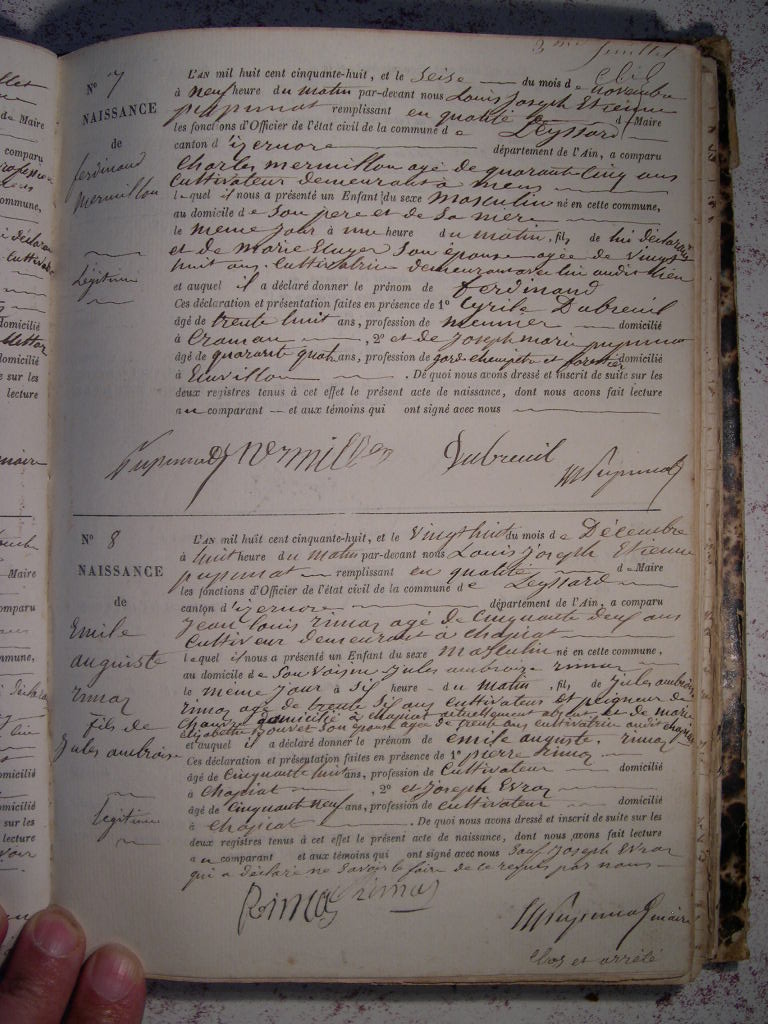 3me feuillet
N° 7
NAISSANCE
de
ferdinand
Mermillon
Légitime
L'AN mil huit cent cinquante-huit, et le seise du mois de novembre
à neuf heure du matin par-devant nous Louis Joseph Etienne
pupunat remplissant en qualité de Maire
les fonctions d'Officier de l'état civil de la commune de Leyssard
canton d'izernore département de l'Ain, a comparu
Charles mermillon agé de quarante cinq ans
Cultivateur demeurant à mens
lequel il nous a présenté un Enfant du sexe masculin né en cette commune,
au domicile de son pere et de sa mere
le meme jour à une heure du matin, fils de lui déclarant
et de Marie son épouse agée de vingt
huit ans, Cultivatrice demeurant avec lui audit lieu
et auquel il a déclaré donner le prénom de ferdinand
Ces déclaration et présentation faites en présence de 1° Cyrile Dubreuil
âgé de trente huit ans, profession de meunier domicilié
à Craman, 2° et de Joseph marie pupunat
âgé de quarante quatre ans, profession de garde champetre et forestier domicilié
à . De quoi nous avons dressé et inscrit de suite sur les
deux registres tenus à cet effet le présent acte de naissance, dont nous avons fait lecture
au comparant et aux témoins qui ont signé avec nous
Pupunat mermillon Dubreuil Pupunat
N° 8
NAISSANCE
de
Emile
auguiste
rimoz
fils de
Jules ambroise
légitime
L'AN mil huit cent cinquante-huit, et le Vingt huit du mois de Décembre
à huit heure du matin par-devant nous Louis Joseph Etienne
pupunat remplissant en qualité de Maire
les fonctions d'Officier de l'état civil de la commune de Leyssard
canton d'izernore département de l'Ain, a comparu
Jean louis rimoz agé de Cinquante deux ans
Cultiveur demeurant à chapiat
lequel il nous a présenté un Enfant du sexe masculin né en cette commune,
au domicile de son Voisin Jules ambroise rimoz
le meme jour à six heure du matin, fils de Jules ambroise
rimoz agé de trente six ans cultivateur et peigneur de
chanvre domicilié à chapiat actuellement absent et de marie
elizabette bouvet son épouse agée de trente ans cultivatrice audit chapiat
et auquel il a déclaré donner le prénom de emile auguste, rimoz
Ces déclaration et présentation faites en présence de 1° pierre rimoz
âgé de Cinquante huit ans, profession de Cultivateur domicilié
à Chapiat, 2° et Joseph Evroz
âgé de Cinquante neuf ans, profession de cultivateur domicilié
à chapiat . De quoi nous avons dressé et inscrit de suite sur les
deux registres tenus à cet effet le présent acte de naissance, dont nous avons fait lecture
au comparant et aux témoins qui ont signé avec nous sauf Joseph Evroz
qui a déclaré ne savoir le faire de ce requis par nous
Rimoz rimoz Pupunat maire
Clos et arrêté